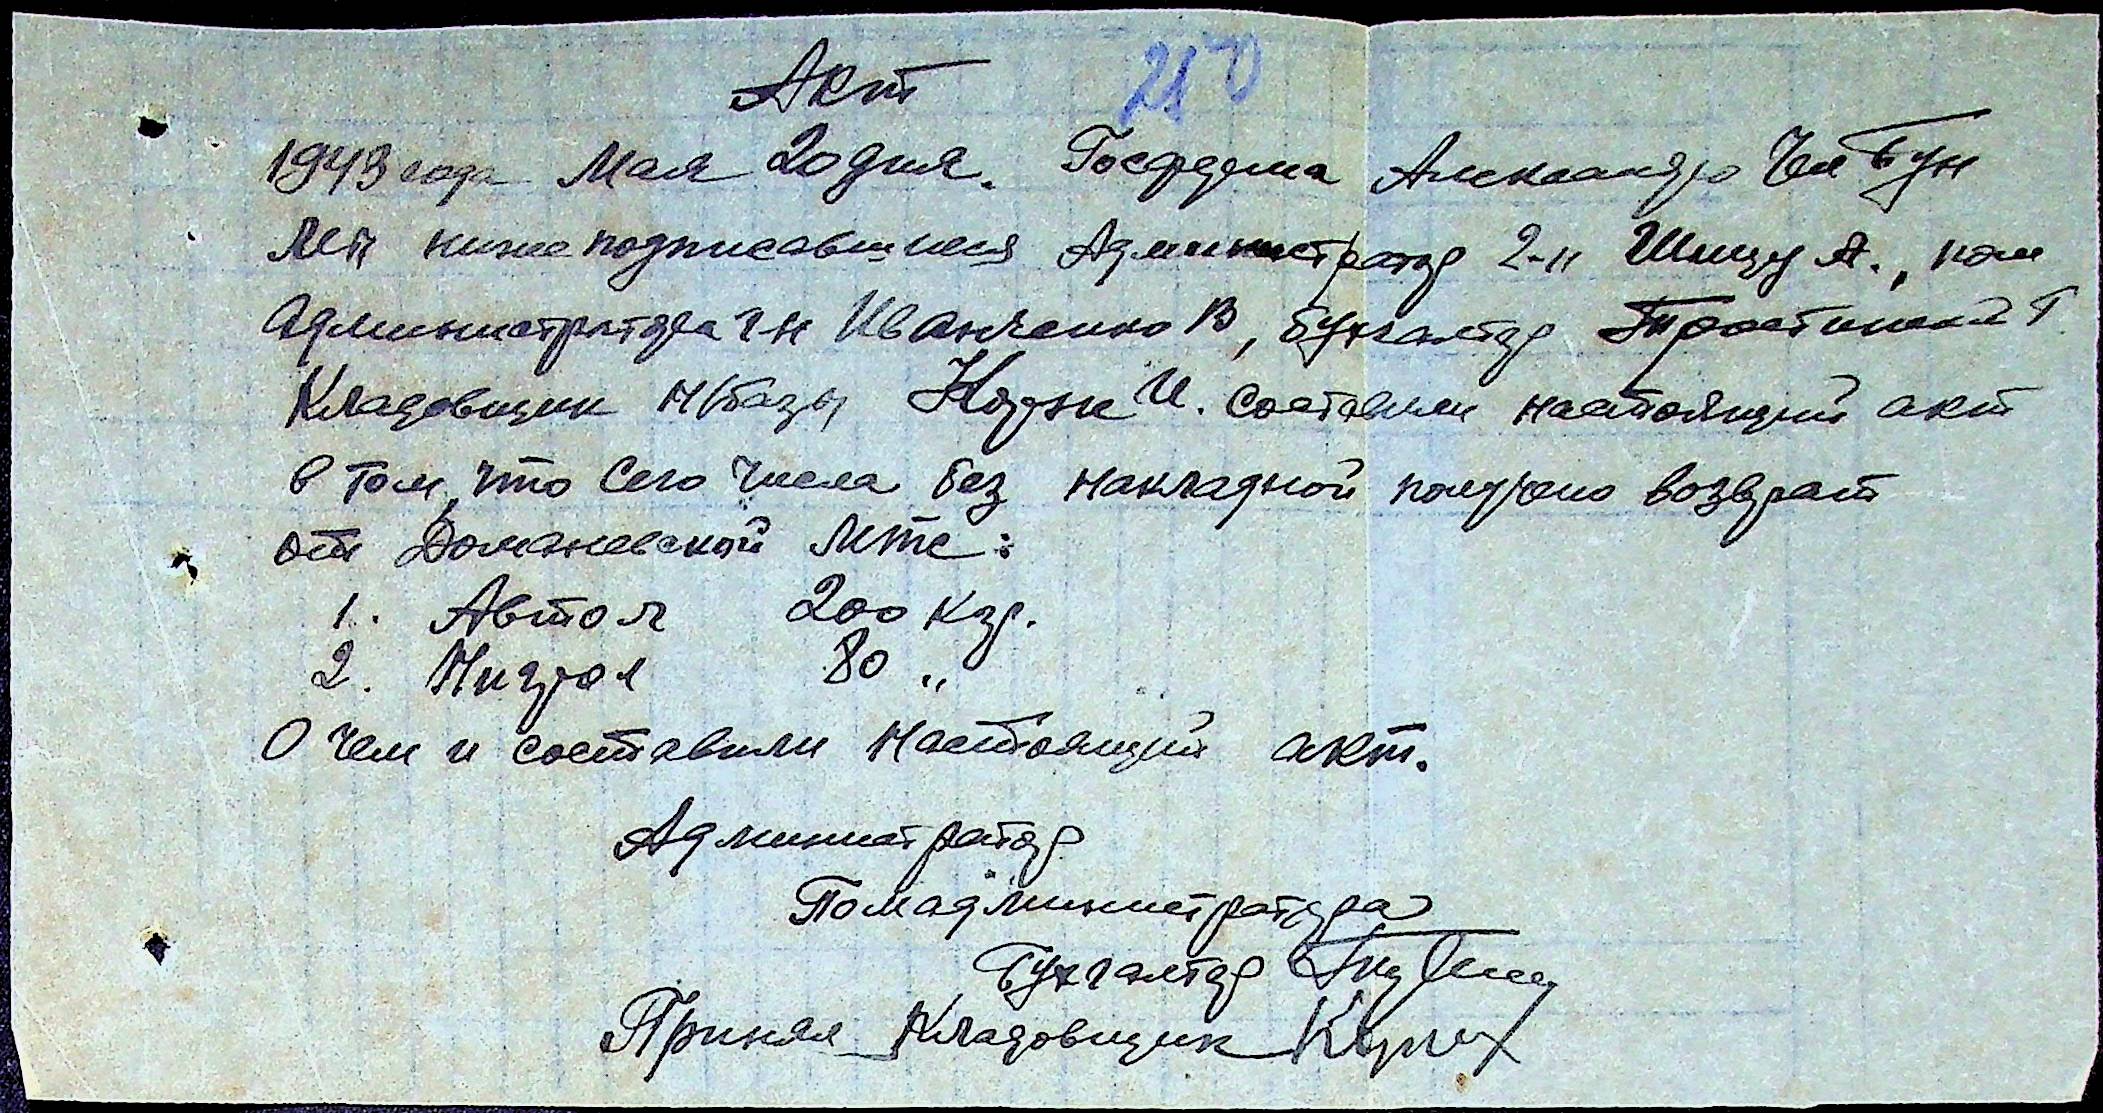 Акт 210
1943 года Мая 20 дня. Госферма Александр Чел Бун
Мы нижеподписавшиеся Администратор г-н Шницу А., пом
Администратора г-н Иванченко В, бухгалтер
Кладовщик н/базы И. составили настоящий акт
в том, что сего числа без накладной получено возврат
от Доманевской МТС:
1. Автол 200 кгр.
2. Нигрол 80 "
О чем и составили настоящий акт.
Администратор
Помадминистратора
Бухгалтер
Принял Кладовщик